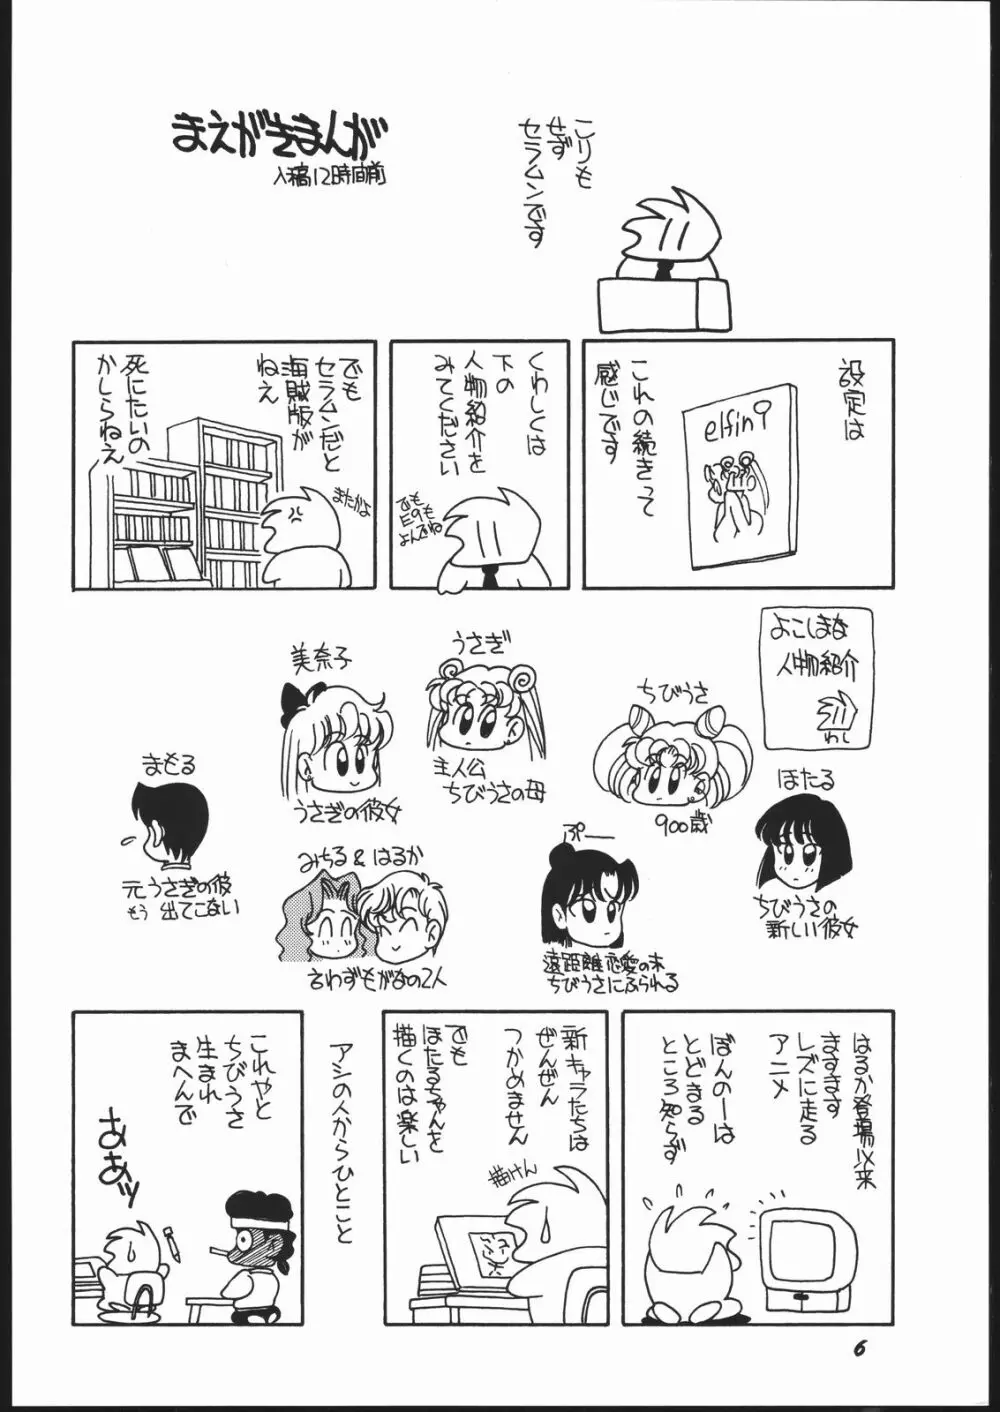 まえがきまんが
入稿12時間前
こりも
せず
セラムンです
設定は
elfin
これの続きって
感じです
くわしくは
下の
人物紹介を
みてください
でも
E9も
よんでね
でも
セラムンだと
海賊版が
ねえ
またかよ
死にたいの
かしらねえ
よこしまな
人物紹介
わし
ちびうさ
900歳
うさぎ
主人公
ちびうさの母
美奈子
うさぎの彼女
まもる
元うさぎの彼
もう出てこない
ほたる
ちびうさの
新しい彼女
ぷー
遠距離恋愛の末
ちびうさにふられる
みちる&はるか
言わずもがなの2人
はるか登場以来
ますます
レズに走る
アニメ
ぼんのーは
とどまる
ところ知らず
新キャラたちは
ぜんぜん
つかめません
でも
ほたるちゃんを
描くのは楽しい
描けん
アシの人からひとこと
これやと
ちびうさ
生まれ
まへんで
ああッ
6